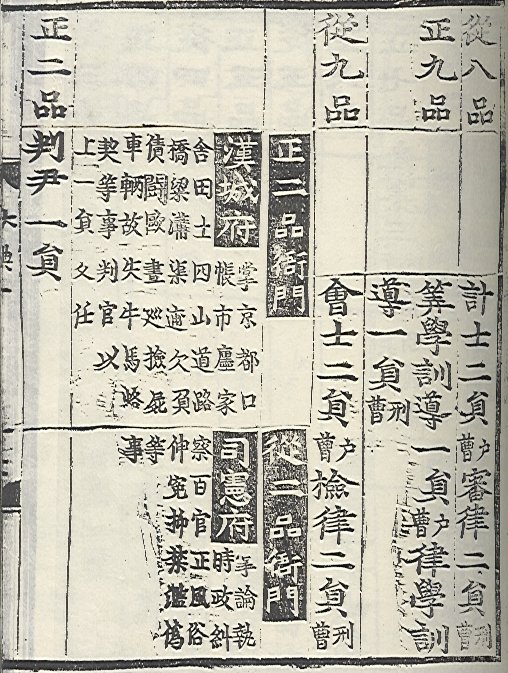 從八品 計士二貟戶曹 審律二貟刑曹
正九品 筭學訓導一貟戶曹 律學訓
導一貟刑曹
從九品 會士二貟戶曹 檢律二貟刑曹
正二品衙門
漢城府
掌京都口
帳市廛家
舍田土四山道路
橋梁溝渠逋欠負
債鬪毆晝巡撿屍
車輛故失牛馬烙
契等事判官以
上一貟久任
從二品衙門
司憲府
掌論執
時政糾
察百官正風俗
伸冤抑禁濫僞
等
事
正二品 判尹一貟